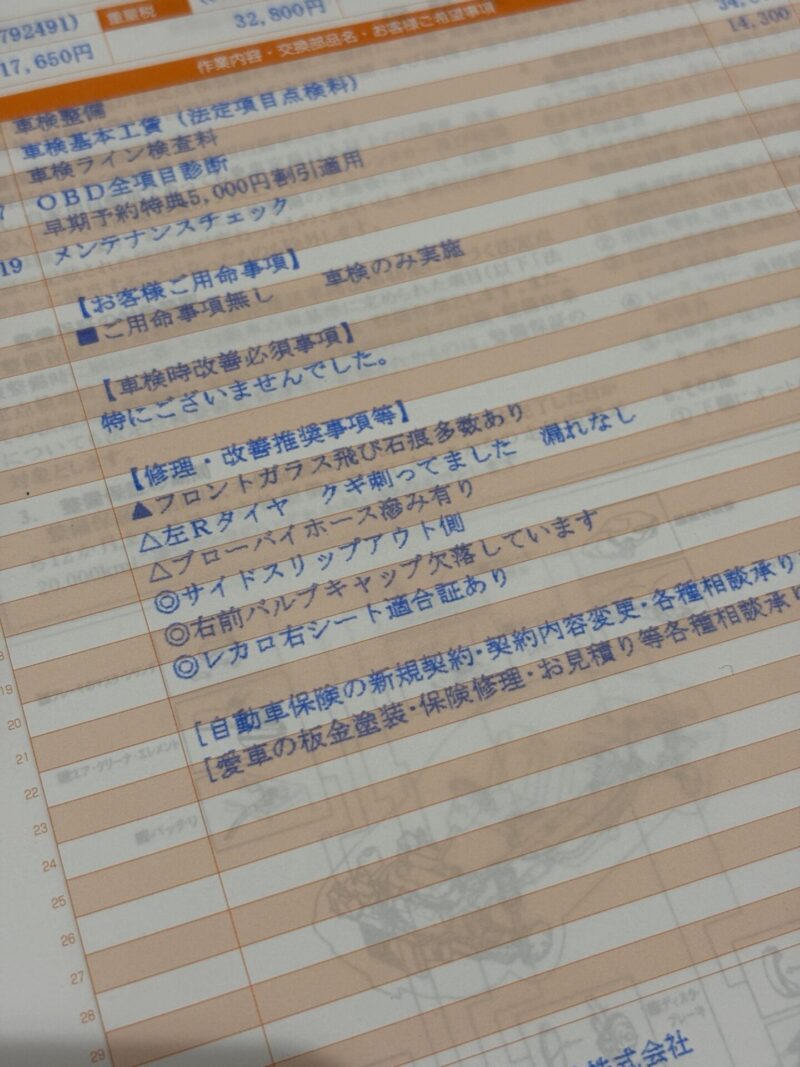 792491)
重量税
32,800円
17,650円
作業内容・交換部品名・お客様ご希望事項
14,300
車検整備
車検基本工賃（法定項目点検料）
車検ライン検査料
7 OBD全項目診断
早期予約特典5,000円割引適用
19 メンテナンスチェック
【お客様ご用命事項】
■ご用命事項無し 車検のみ実施
【車検時改善必須事項】
特にございませんでした。
【修理・改善推奨事項等】
▲フロントガラス飛び石痕多数あり
△左Rタイヤ クギ刺ってました 漏れなし
△ブローバイホース滲み有り
◎サイドスリップアウト側
◎右前バルブキャップ欠落しています
◎レカロ右シート適合証あり
[自動車保険の新規契約・契約内容変更・各種相談承り
[愛車の板金塗装・保険修理・お見積り等各種相談承り
19
20
21
22
23
24
25
26
27
28
29
株式会社